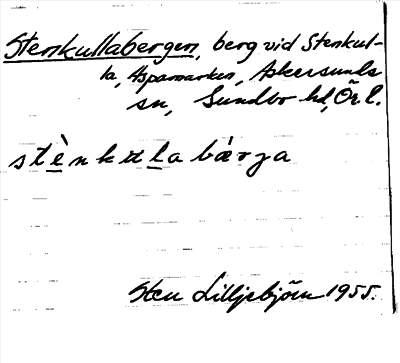 Stenkullabergen, berg vid Stenkul-
la, Aspamarken, Askersunds
sn, Sundbo hd, Ör. l.
stènkulla bærja
Sten Lilljebjörn 1955.